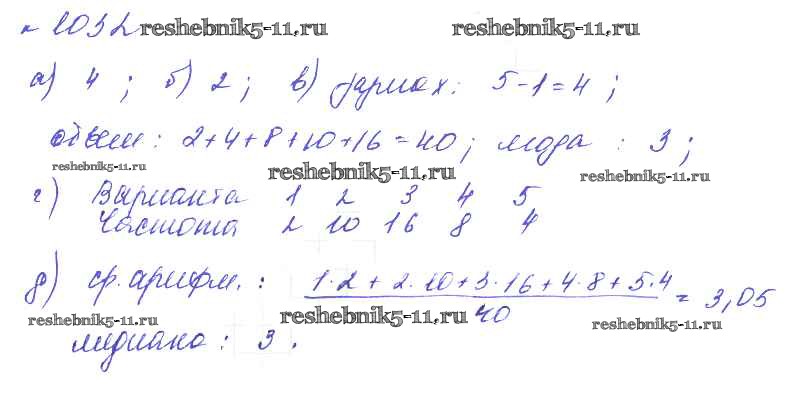 № 1032 reshebnik5-11.ru reshebnik5-11.ru
а) 4 ; б) 2 ; в) размах : 5-1=4 ;
объем : 2+4+8+10+16=40 ; мода : 3 ;
reshebnik5-11.ru reshebnik5-11.ru reshebnik5-11.ru
г) Варианта 1 2 3 4 5
Частота 2 10 16 8 4
д) ср. арифм. : 1·2+2·10+3·16+4·8+5·4 = 3,05
40
reshebnik5-11.ru reshebnik5-11.ru reshebnik5-11.ru
медиана : 3 .